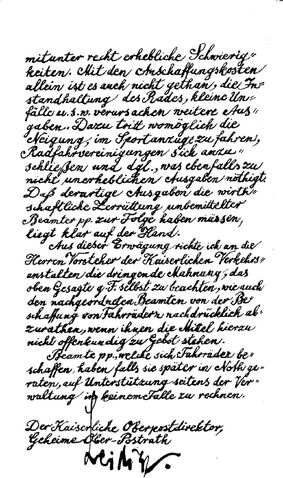 mitunter recht erhebliche Schwierig-
keiten. Mit den Anschaffungskosten
allein ist es auch nicht gethan, die In-
standhaltung des Rades, kleine Un-
fälle u.s.w. verursachen weitere Aus-
gaben. Dazu trit womöglich die
Neigung, im Sportanzuge zu fahren,
Radfahrvereinigungen sich anzu-
schließen und dgl., was ebenfalls zu
nicht unerheblichen Ausgaben nöthigt.
Daß derartige Ausgaben die wirth-
schaftliche Zerrüttung unbemittelter
Beamter pp. zur Folge haben müssen,
liegt klar auf der Hand.
Aus dieser Erwägung richte ich an die
Herren Vorsteher der Kaiserlichen Verkehrs-
anstalten die dringende Mahnung, das
oben Gesagte g. F. selbst zu beachten, wie auch
den nachgeordneten Beamten von der Be-
schaffung von Fahrrädern nachdrücklich ab-
zurathen, wenn ihnen die Mitel hierzu
nicht offenkundig zu Gebot stehen.
Beamte pp., welche sich Fahrräder be-
schaffen, haben falls sie später in Noth ge-
raten, auf Unterstützung seitens der Ver-
waltung in keinem Falle zu rechnen.
Der Kaiserliche Oberpostdirektor,
Geheime Ober-Postrath